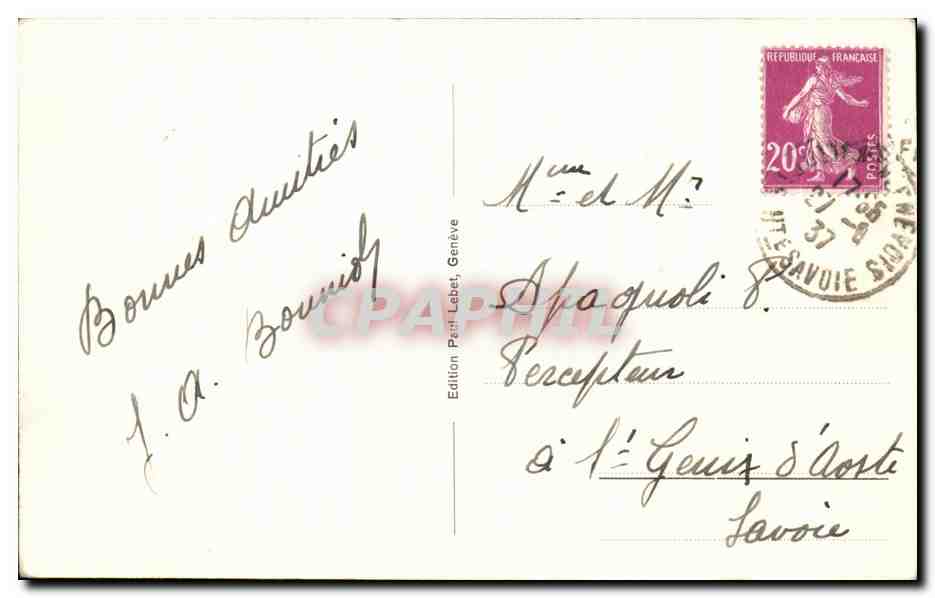 Bonnes Amitiés
J. A. Bonnidy
Edition Paul Lebet, Genève
CPAPHIL
REPUBLIQUE FRANÇAISE
20c
POSTES
21 -8
37
HTE SAVOIE
Mme et Mr
Spagnoli P.
Percepteur
à St Genix d'Aoste
Savoie